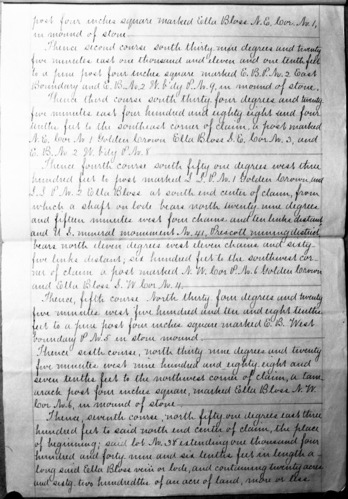 post four inches square marked Ella Bloss N.E. Cor. No. 1,
in mound of stone.
Thence second course south thirty nine degrees and twenty
five minutes east one thousand and eleven and one tenth feet
to a pine post four inches square marked E.B.P. No. 2 East
Boundary and E.B. No. 2 W. b'dy P. No. 9, in mound of stone.
Thence third course south thirty four degrees and twenty
five minutes east four hundred and eighty eight and four
tenths feet to the southeast corner of claim, a post marked
N.E. Cor No 1 Golden Crown Ella Bloss S.E. Cor No. 3, and
E.B. No 2 W. b'dy P. No. 8
Thence fourth course south fifty one degrees west three
hundred feet to post marked L.L.P. No. 1 Golden Crown and
L.L.P. No. 2 Ella Bloss at south end center of claim, from
which a shaft on lode bears north twenty nine degrees
and fifteen minutes west four chains and ten links distant
and U.S. mineral monument No. 41, Prescott mining district
bears north eleven degrees west eleven chains and sixty
five links distant, six hundred feet to the southwest cor-
ner of claim a post marked N.W. Cor P. No. 6 Golden Crown
and Ella Bloss S.W. Cor No. 4.
Thence, fifth course North thirty four degrees and twenty
five minutes west five hundred and ten and eight tenths
feet to a pine post four inches square marked E.B. West
boundary P No. 5 in stone mound.
Thence sixth course, north thirty nine degrees and twenty
five minutes west nine hundred and eighty eight and
seven tenths feet to the northwest corner of claim, a tam-
arack post four inches square, marked Ella Bloss N.W.
Cor No. 6, in mound of stone.
Thence, seventh course, north fifty one degrees east three
hundred feet to said north end centre of claim, the place
of beginning; said lot No. 38 extending one thousand four
hundred and forty nine and six tenths feet in length a-
long said Ella Bloss vein or lode, and containing twenty acres
and sixty two hundredths of an acre of land, more or less.